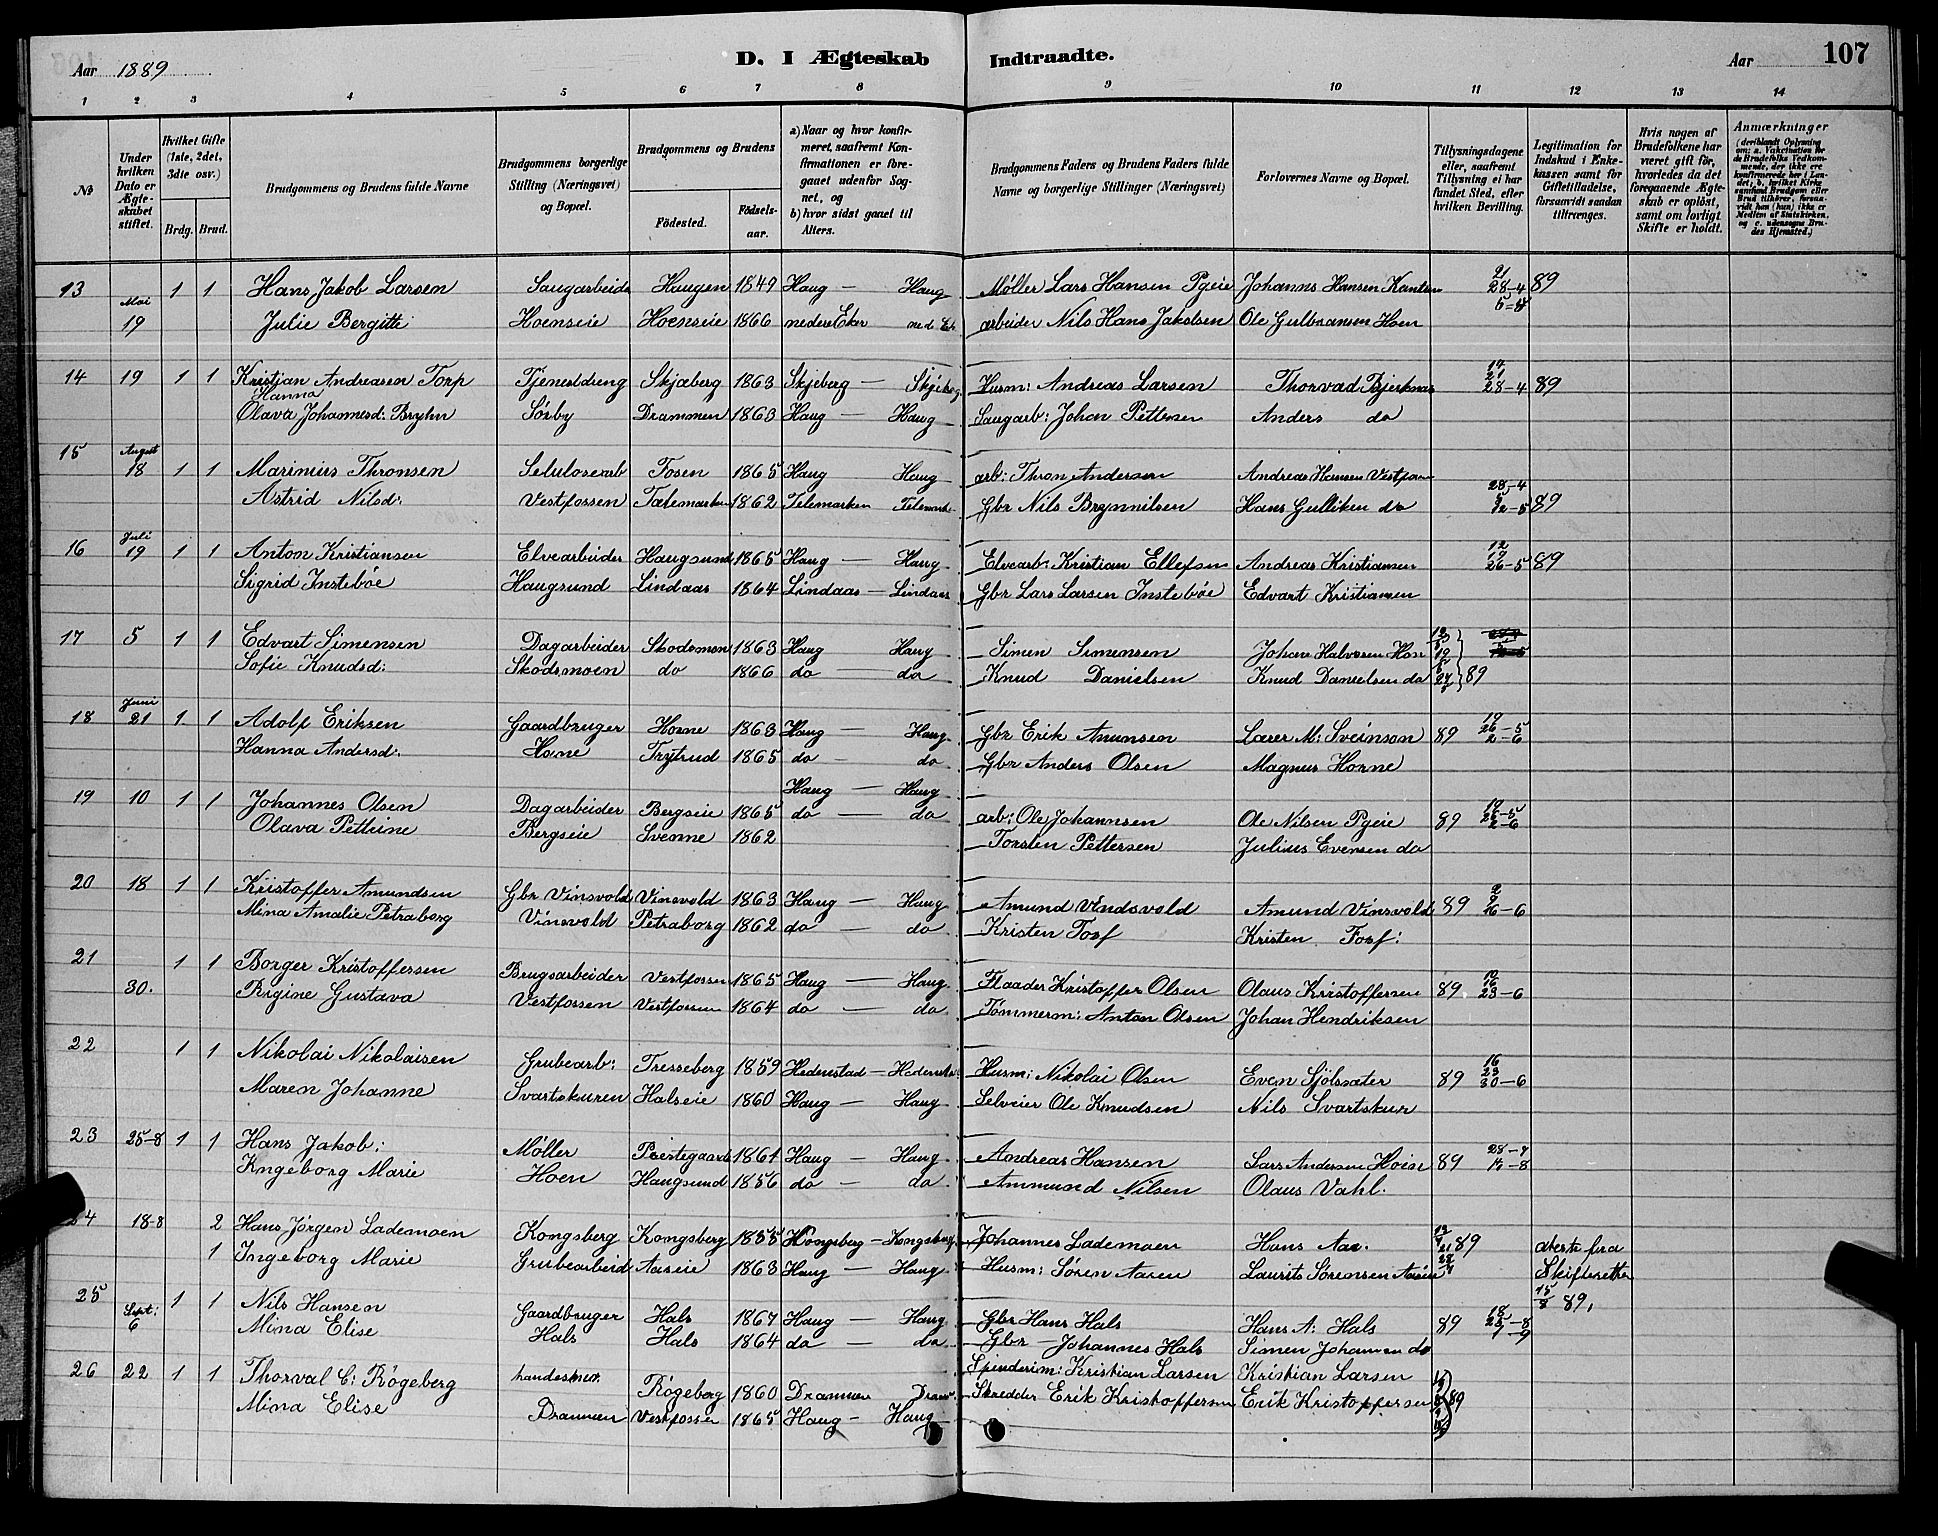 Aar 1889 D. I Ægteskab Indtraadte. Aar 107
1 2 3 4 5 6 7 8 9 10 11 12 13 14
№
Under hvilken Dato er Ægteskabet stiftet.
Hvilket Gifte (1ste, 2det, 3die osv.)
Brdg. Brud.
Brudgommens og Brudens fulde Navne
Brudgommens borgerlige Stilling (Næringsvei) og Bopæl.
Brudgommens og Brudens
Fødested. Fødselsaar.
a) Naar og hvor konfirmeret, saafremt Konfirmationen er foregaaet udenfor Sognet, og
b) hvor sidst gaaet til Alters.
Brudgommens Faders og Brudens Faders fulde Navne og borgerlige Stillinger (Næringsvei)
Forlovernes Navne og Bopæl.
Tillysningsdagene eller, saafremt Tillysning ei har fundet Sted, efter hvilken Bevilling.
Legitimation for Indskud i Enkekassen samt for Giftetilladelse, forsaavidt saadan tiltrænges.
Hvis nogen af Brudefolkene har været gift før, hvorledes da det foregaaende Ægteskab er opløst, samt om lovligt Skifte er holdt.
Anmærkninger (deriblandt Oplysning om: a. Vakcination for de Brudefolks Vedkommende, der ikke ere konfirmerede her i Landet; b. hvilket Kirkesamfund Brudgom eller Brud tilhører, forsaavidt han (hun) ikke er Medlem af Statskirken, og c. udensogns Brudes Hjemsted.)
13 Mai 1 1 Hans Jakob Larsen Saugarbeide Haugen 1849 Haug — Haug Møller Lars Hansen Pgeie Johanns Hansen 21 28-4 89
19 Julie Bergitte Hoenseie Hoenseie 1866 nedere Eker ned. Ek arbeider Nils Hans Jakobsen Ole Gulbransen Hoen
14 19 1 1 Kristjan Andreasen Torp Tjenestdreng Skjæberg 1863 Skjeberg — Skjeberg Husm: Andreas Larsen Thorvad Bjerknas 14 21 28-4 89
Hanna
Olava Johannesd: Bryhn Sørby Drammen 1863 Haug — Haug Saugarb: Johan Pettersen Anders do
15 August 18 1 1 Marinius Thronsen Selulosearb Fosen 1865 Haug Haug arb: Thron Andersen Andreas Hansen
Astrid Nilsd: Vestfossen Tælemarken 1862 Telemarken Telemark Gbr Nils Brynnilsen Hans Gulliken do 28-4 5 12-5 89
16 Juli 19 1 1 Anton Kristiansen Elvearbeider Haugsund 1865 Haug — Haug Elvearb: Kristian Ellefsen Andreas Kristiansen 12 19 26-5 89
Sigrid Instebøe Haugsund Lindaas 1864 Lindaas — Lindaas Gbr Lars Larsen Instebøe Edvart Kristiansen
17 5 1 1 Edvart Simensen Dagarbeider Skodsmoen 1863 Haug Haug Simen Simensen Johan Halvorsen Hon
Sofie Knudsd: Skodsmoen do 1866 do do Knud Danielsen Knud Danielsen do 89
18 Juni 21 1 1 Adolf Eriksen Gaardbruger Horne 1863 Haug — Haug Gbr Erik Amunsen Lærer M: Sveinson 89 19 26-5 2-6
Hanna Andersd: Horne Frytrud 1865 do — do Gbr Anders Olsen Magnus Horne
19 10 1 1 Johannes Olsen Dagarbeider Bergseie 1865 Haug — Haug arb: Ole Johannsen Ole Nilsen Pgeie 89 19 26-5 2-6
Olava Petrine Bergseie Svenne 1862 do — do Torsten Pettersen Julius Evensen do
20 18 1 1 Kristoffer Amundsen Gbr Vinsvold Vinsvold 1863 Haug — Haug Amund Vindsvold Amund Vinsvold 89 2 9 16-6
Mina Amalie Petraborg Vinsvold Petraborg 1862 do — do Kristen Fosf Kristen Fosf:
21 30. 1 1 Borger Kristoffersen Brugsarbeider Vestfossen 1865 Haug — Haug Flaader Kristoffer Olsen Olaus Kristoffersen 89 19 16 23-6
Rigine Gustava Vestfossen Vestfossen 1864 do — do Tømmerm: Anton Olsen Johan Hendriksen
22 1 1 Nikolai Nikolaisen Grubearb: Tresseberg 1859 Hedenstad — Hedensta Husm: Nikolai Olsen Even Sjølsæter 89 16 23 30-6
Maren Johanne Svartskuren Halseie 1860 Haug — Haug Selveier Ole Knudsen Nils Svartskur
23 25-8 1 1 Hans Jakob: Møller Prestegaard 1861 Haug — Haug Andreas Hansen Lars Andersen Hoen 89 28-7
Ingeborg Marie Hoen Haugsund 1856 do — do Ammund Nilsen Olaus Vahl.
24 18-8 2 Hans Jørgen Lademoen Kongsberg Kongsberg 1855 Kongsberg — Kongsberg Johannes Lademoen Hans Aas. 89 atest fra
1 Ingeborg Marie Grubearbeid Aaseie 1863 Haug — Haug Husm: Søren Aasen Laurits Sørensen Aasen Skifteretten
15/8 89,
25 Sept: 6 1 1 Nils Hansen Gaardbruger Hals 1867 Haug — Haug Gbr Hans Hals Hans A: Hals 89 18 25-8
Mina Elise Hals Hals 1864 da — da Gbr — Johannes Hals Simen Johannsen do
26 22 1 1 Thorval C: Røgeberg handesmn. Røgeberg 1860 Drammen Dram Spinderim: Kristian Larsen Kristian Larsen
Mina Elise Drammen Vestfossen 1865 Haug — Haug Skredder Erik Kristoffersen Erik Kristoffersen 89